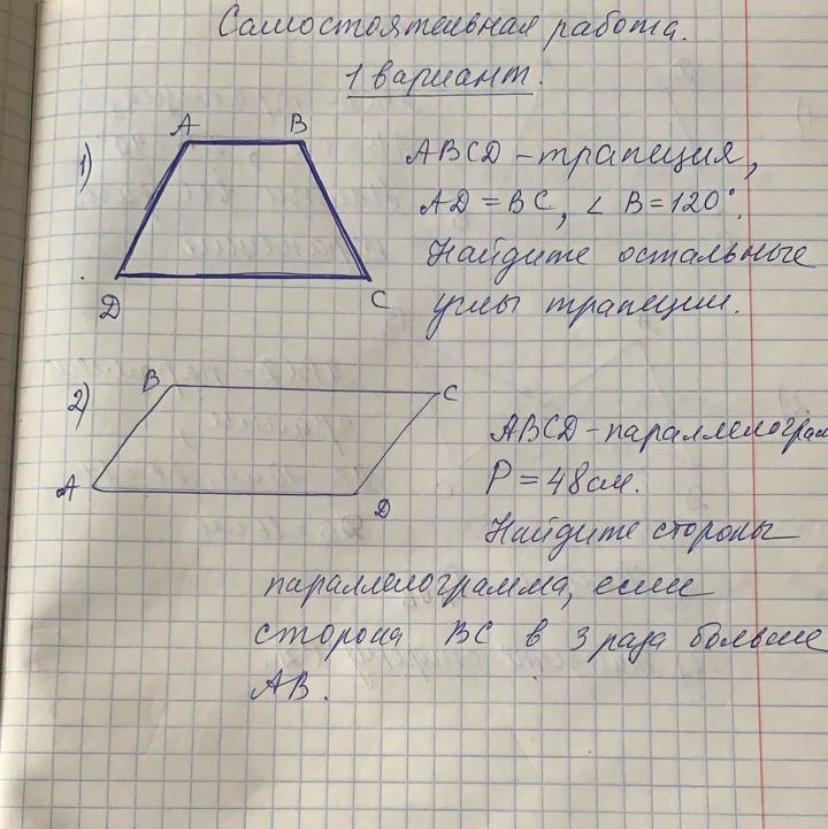 Самостоятельная работа.
1 вариант.
1)
A B
D C
ABCD – трапеция,
AD = BC, ∠ B = 120°.
Найдите остальные
углы трапеции.
2)
B C
A D
ABCD – параллелограм
P = 48 см.
Найдите стороны
параллелограмма, если
сторона BC в 3 раза больше
AB.